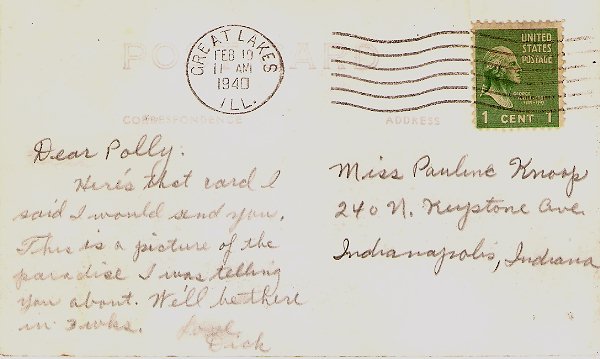 POST CARD
GREAT LAKES
FEB 19
11 AM
1940
ILL.
UNITED
STATES
POSTAGE
1 CENT 1
CORRESPONDENCE
ADDRESS
Dear Polly.
Here's that card I
said I would send you.
This is a picture of the
paradise I was telling
you about. We'll be there
in 3 wks. Love,
Dick
Miss Pauline Knoop
240 N. Keystone Ave.
Indianapolis, Indiana